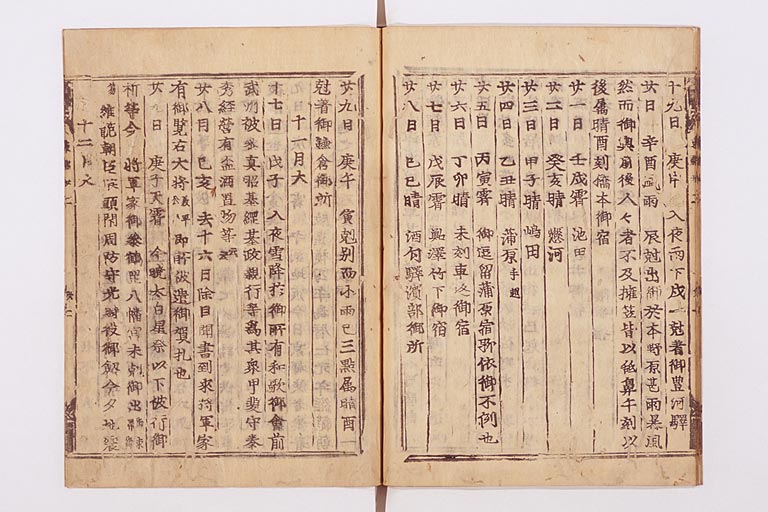 十九日 庚申 入夜雨下戌一尅着御豊河驛
廿日 辛酉風雨 辰尅出御於本野原甚雨暴風
然而御輿前後人々者不及擁笠皆以低鼻午刻以
後属晴酉刻橋本御宿
廿一日 壬戌霽 池田
廿二日 癸亥晴 懸河
廿三日 甲子晴 嶋田
廿四日 乙丑晴 蒲原 手越
廿五日 丙寅霽 御逗留蒲原宿聊依御不例也
廿六日 丁卯晴 未刻車返御宿
廿七日 戊辰霽 鮎澤竹下御宿
廿八日 己巳晴 酒匂驛濱部御所
廿九日 庚午 寅尅別而小雨巳三點属晴酉一
尅着御鎌倉御所
十一月大
十七日 戊子 入夜雪降於御所有和歌御會前
武州被参眞昭基綱基政親行等爲其衆甲斐守泰
秀經營有盃酒置物等云々
廿八月 己亥 去十六日除目聞書到来将軍家
有御覧右大将 即所被遣御賀札也
廿九日 庚子天霽 今暁太白星祭以下被行御
祈等今 将軍家御参御 八幡宮未剋御出
維範朝臣 頭 周防守光時役御釼今夕地震
十二月大